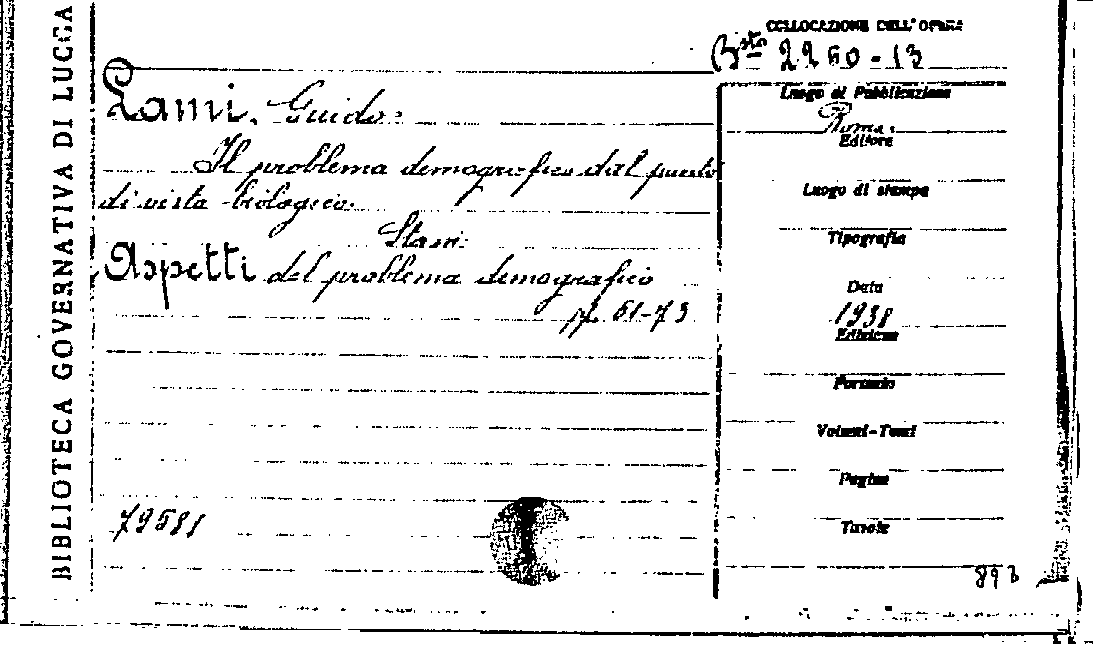 BIBLIOTECA GOVERNATIVA DI LUCCA
COLLOCAZIONE DELL'OPERA
Bsta 2260-13
Lami, Guido:
Il problema demografico dal punto
di vista biologico.
Stam:
Aspetti del problema demografico
pp. 61-73
79581
Luogo di Pubblicazione
Roma.
Editore
Luogo di stampa
Tipografia
Data
1938
Edizione
Formato
Volumi-Tomi
Pagine
Tavole